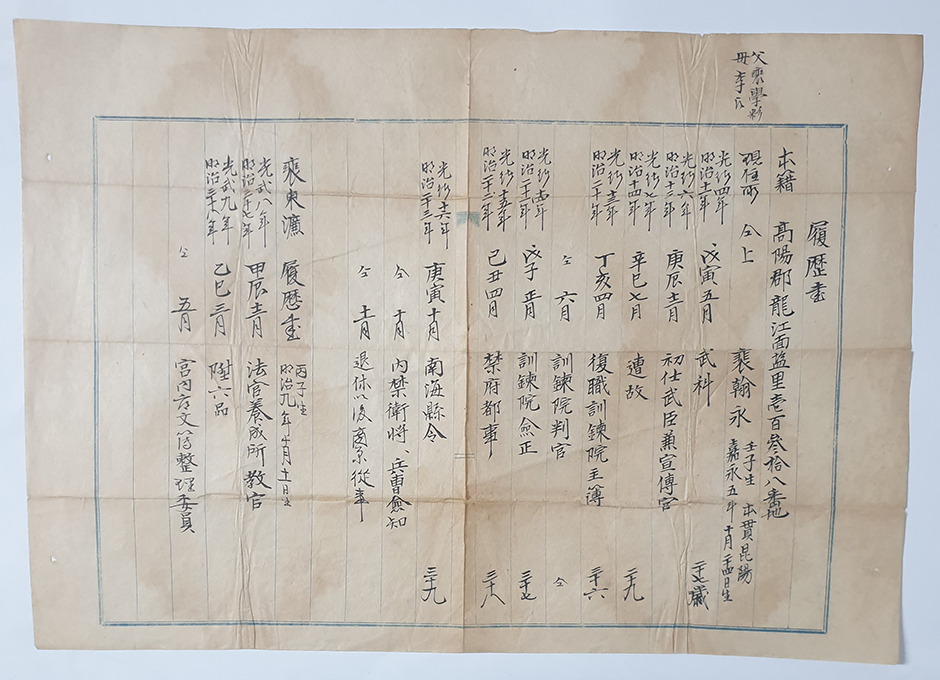 父裵學彬
母李氏
履歷書
本籍 高陽郡龍江面盐里壱百参拾八番地
現住所 仝上 裵翰永 壬子生 本貫昆陽
嘉永五年十月二十四日生
光緖四年
明治十一年 戊寅五月 武科 二十七歲
光緖六年
明治十三年 庚辰十二月 初仕武臣兼宣傳官
光緖七年
明治十四年 辛巳七月 遭故 二十九
光緖十三年
明治二十年 丁亥四月 復職訓鍊院主簿 三十六
仝 六月 訓鍊院判官 仝
光緖十四年
明治二十一年 戊子正月 訓鍊院僉正 三十七
光緖十五年
明治二十二年 己丑四月 禁府都事 三十八
光緖十六年
明治二十三年 庚寅十月 南海縣令 三十九
仝 十月 內禁衛將、兵曹僉知
仝 十二月 退休以後農業從事
裵東濂 履歷書 丙子生
明治九年十一月十二日生
光武八年
明治三十七年 甲辰十二月 法官養成所敎官
光武九年
明治三十八年 乙巳三月 陞六品
仝 五月 宮內府文簿整理委員